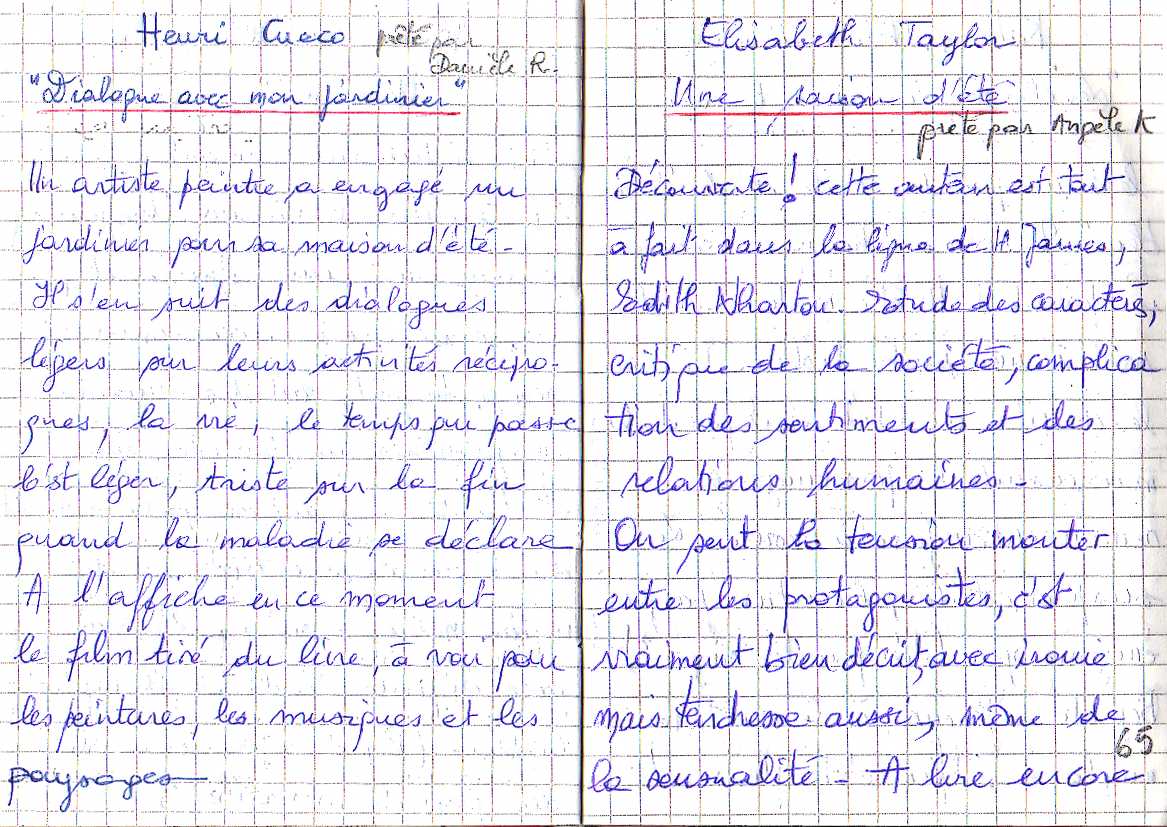 Henri Cueco prêté par
Danièle R.
"Dialogue avec mon jardinier"
Un artiste peintre a engagé un
jardinier pour sa maison d'été -
Il s'en suit des dialogues
légers sur leurs activités récipro-
ques, la vie, le temps qui passe
C'est léger, triste sur la fin
quand la maladie se déclare
A l'affiche en ce moment
le film tiré du livre, à voir pour
les peintures, les musiques et les
paysages
Elisabeth Taylor
Une saison d'été
prêté par Angèle K
Découverte ! cette auteur est tout
à fait dans la ligne de H. James,
Edith Wharton. Etude des caractères,
critique de la société, complica
tion des sentiments et des
relations humaines -
On sent la tension monter
entre les protagonistes, c'est
vraiment bien décrit, avec ironie
mais tendresse aussi, même de
la sensualité - A lire encore
65